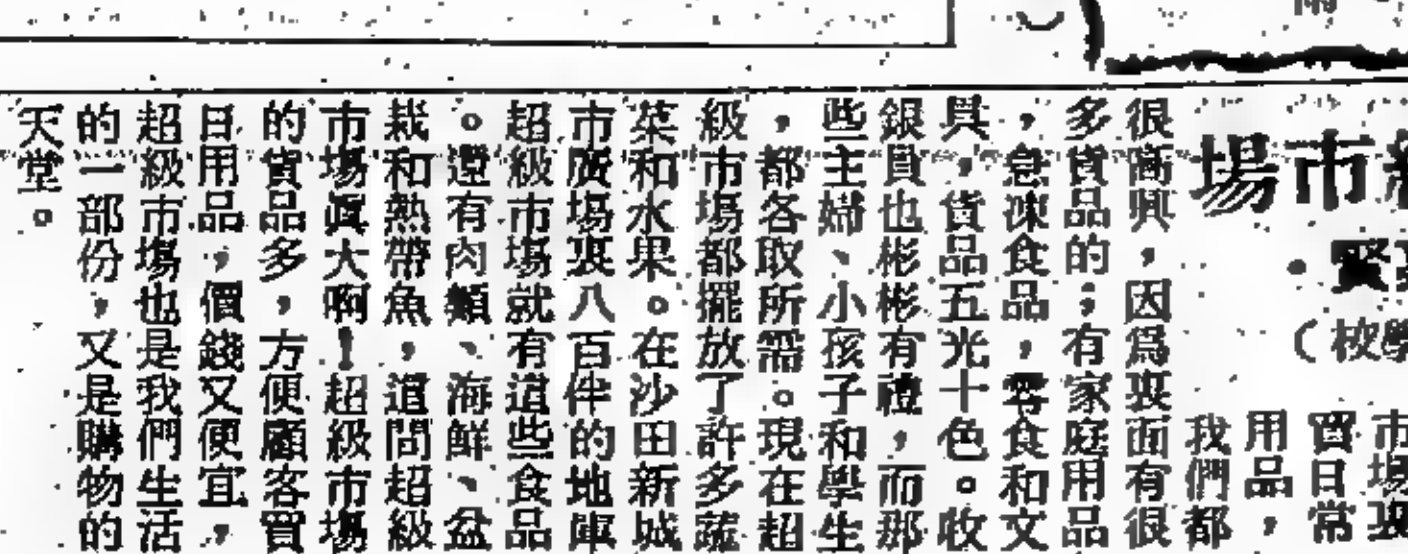 市場
賢
學校（
市場裏
買日常
用品，
我們都
很高興，因爲裏面有很
多貨品的；有家庭用品
，急凍食品，零食和文
具，貨品五光十色。收
銀員也彬彬有禮，而那
些主婦、小孩子和學生
，都各取所需。現在超
級市場都擺放了許多蔬
菜和水果。在沙田新城
市廣場裏八百伴的地庫
超級市場就有這些食品
。還有肉類、海鮮、盆
栽和熱帶魚，這間超級
市場眞大啊！超級市場
的貨品多，方便顧客買
日用品，價錢又便宜，
超級市場也是我們生活
的一部份，又是購物的
天堂。